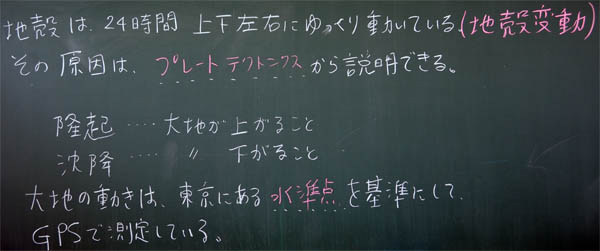 地殻は、24時間 上下左右にゆっくり動いている。(地殻変動)
その原因は、プレートテクトニクスから説明できる。
隆起‥‥大地が上がること
沈降‥‥ 〃 下がること
大地の動きは、東京にある水準点を基準にして、
GPSで測定している。